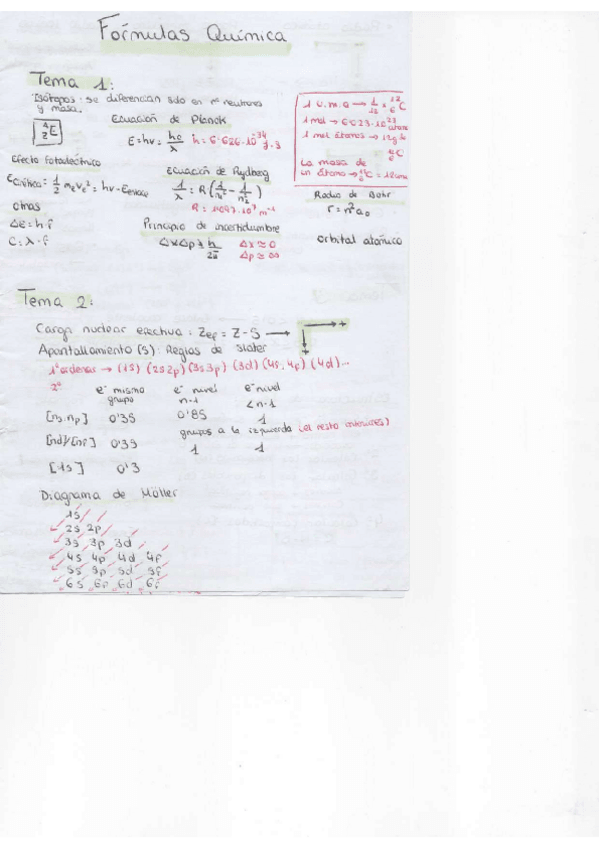 Fórmulas Química
Tema 1:
Isótopos: se diferencian solo en nº neutrones
y masa.
A
Z E
Ecuación de Planck
E=hν = hc/λ h = 6'626·10^-34 J·s
1 u.m.a → 1/12 × 12 6 C
1 mol → 6'023·10^23
1 mol átomos → 12g de
12 6 C
La masa de
un átomo → 12 6 C = 12uma
Efecto fotoeléctrico
Ecinética = 1/2 mₑvₑ² = hν - Eenlace
Ecuación de Rydberg
1/λ = R (1/n₁² - 1/n₂²)
R = 1'097·10^7 m^-1
Radio de Bohr
r = n²a₀
otras
ΔE = h·f
C = λ·f
Principio de incertidumbre
Δx Δp ≥ h/2π
Δx ≈ 0
Δp ≈ ∞
orbital atómico
Tema 2:
Carga nuclear efectiva: Zef = Z - S →
Apantallamiento (S): Reglas de Slater
1º ordenar → (1s) (2s2p) (3s3p) (3d) (4s,4p) (4d)...
2º
e⁻ mismo grupo
e⁻ nivel n-1
e⁻ nivel < n-1
[ns,np] 0'35 0'85 1
grupos a la izquierda (el resto interiores)
[nd]/[nf] 0'35 1 1
[1s] 0'3
Diagrama de Möller
1s
2s 2p
3s 3p 3d
4s 4p 4d 4f
5s 5p 5d 5f
6s 6p 6d 6f